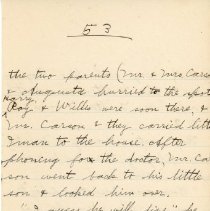 53
the two parents (Mr. & Mrs. Carson
& Augusta hurried to the spot
Mary,
Roy & Wells were soon there, &
Mr. Carson & they carried little
Iman to the house. After
phoning for the doctor, Mr. Car
son went back to his little
son & looked him over.
"I guess he will live" he